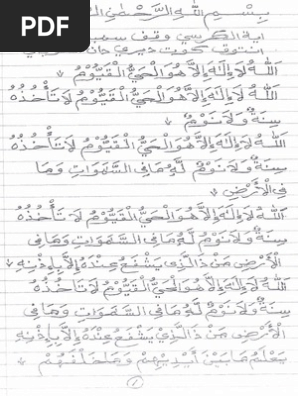 PDF
بِسْمِ اللهِ الرَّحْمٰنِ
اية الكرسي وقف
انتوق
اَللهُ لَا إِلٰهَ إِلَّا هُوَ الْحَيُّ الْقَيُّوْمُ
اَللهُ لَا إِلٰهَ إِلَّا هُوَ الْحَيُّ الْقَيُّوْمُ لَا تَأْخُذُهُ
سِنَةٌ وَلَا نَوْمٌ
اَللهُ لَا إِلٰهَ إِلَّا هُوَ الْحَيُّ الْقَيُّوْمُ لَا تَأْخُذُهُ
سِنَةٌ وَلَا نَوْمٌ لَهُ مَا فِي السَّمٰوَاتِ وَمَا
فِي الْأَرْضِ
اَللهُ لَا إِلٰهَ إِلَّا هُوَ الْحَيُّ الْقَيُّوْمُ لَا تَأْخُذُهُ
سِنَةٌ وَلَا نَوْمٌ لَهُ مَا فِي السَّمٰوَاتِ وَمَا فِي
الْأَرْضِ مَنْ ذَا الَّذِيْ يَشْفَعُ عِنْدَهُ إِلَّا بِإِذْنِهِ
اَللهُ لَا إِلٰهَ إِلَّا هُوَ الْحَيُّ الْقَيُّوْمُ لَا تَأْخُذُهُ
سِنَةٌ وَلَا نَوْمٌ لَهُ مَا فِي السَّمٰوَاتِ وَمَا فِي
الْأَرْضِ مَنْ ذَا الَّذِيْ يَشْفَعُ عِنْدَهُ إِلَّا بِإِذْنِهِ
يَعْلَمُ مَا بَيْنَ أَيْدِيْهِمْ وَمَا خَلْفَهُمْ